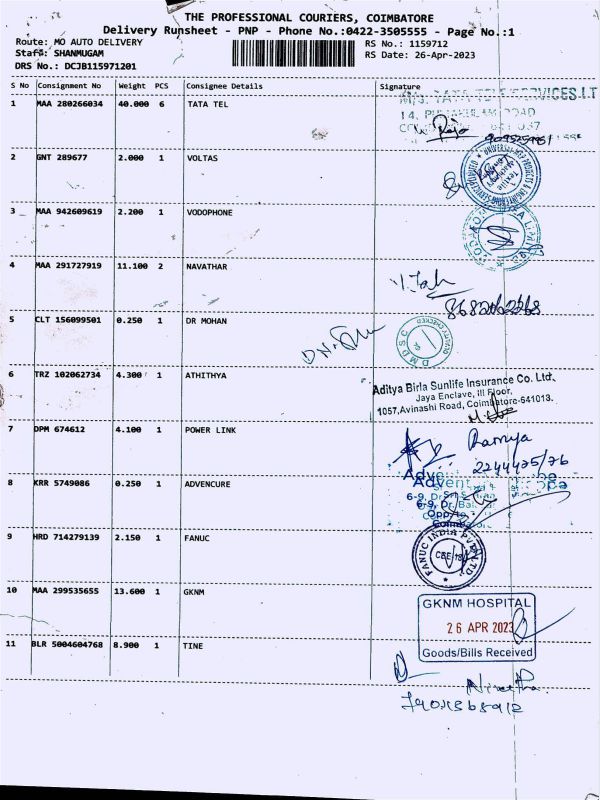 THE PROFESSIONAL COURIERS, COIMBATORE
Delivery Runsheet - PNP - Phone No.:0422-3505555 - Page No.:1
Route: MO AUTO DELIVERY RS No.: 1159712
Staff: SHANMUGAM RS Date: 26-Apr-2023
DRS No.: DCJB115971201
S No Consignment No Weight PCS Consignee Details Signature
1 MAA 280266034 40.000 6 TATA TEL
M/S. TATA TELE SERVICES LT
14,
Raja
2 GNT 289677 2.000 1 VOLTAS
3 MAA 942609619 2.200 1 VODOPHONE
4 MAA 291727919 11.100 2 NAVATHAR
5 CLT 156099501 0.250 1 DR MOHAN
DMDSC
6 TRZ 102062734 4.300 1 ATHITHYA
Aditya Birla Sunlife Insurance Co. Ltd.
Jaya Enclave, III Floor,
1057,Avinashi Road, Coimbatore-641013.
7 DPM 674612 4.100 1 POWER LINK
Ramya
2244475/76
8 KRR 5749086 0.250 1 ADVENCURE
9 HRD 714279139 2.150 1 FANUC
FANUC INDIA PVT LTD
10 MAA 299535655 13.600 1 GKNM
GKNM HOSPITAL
26 APR 2023
Goods/Bills Received
11 BLR 5004604768 8.900 1 TINE